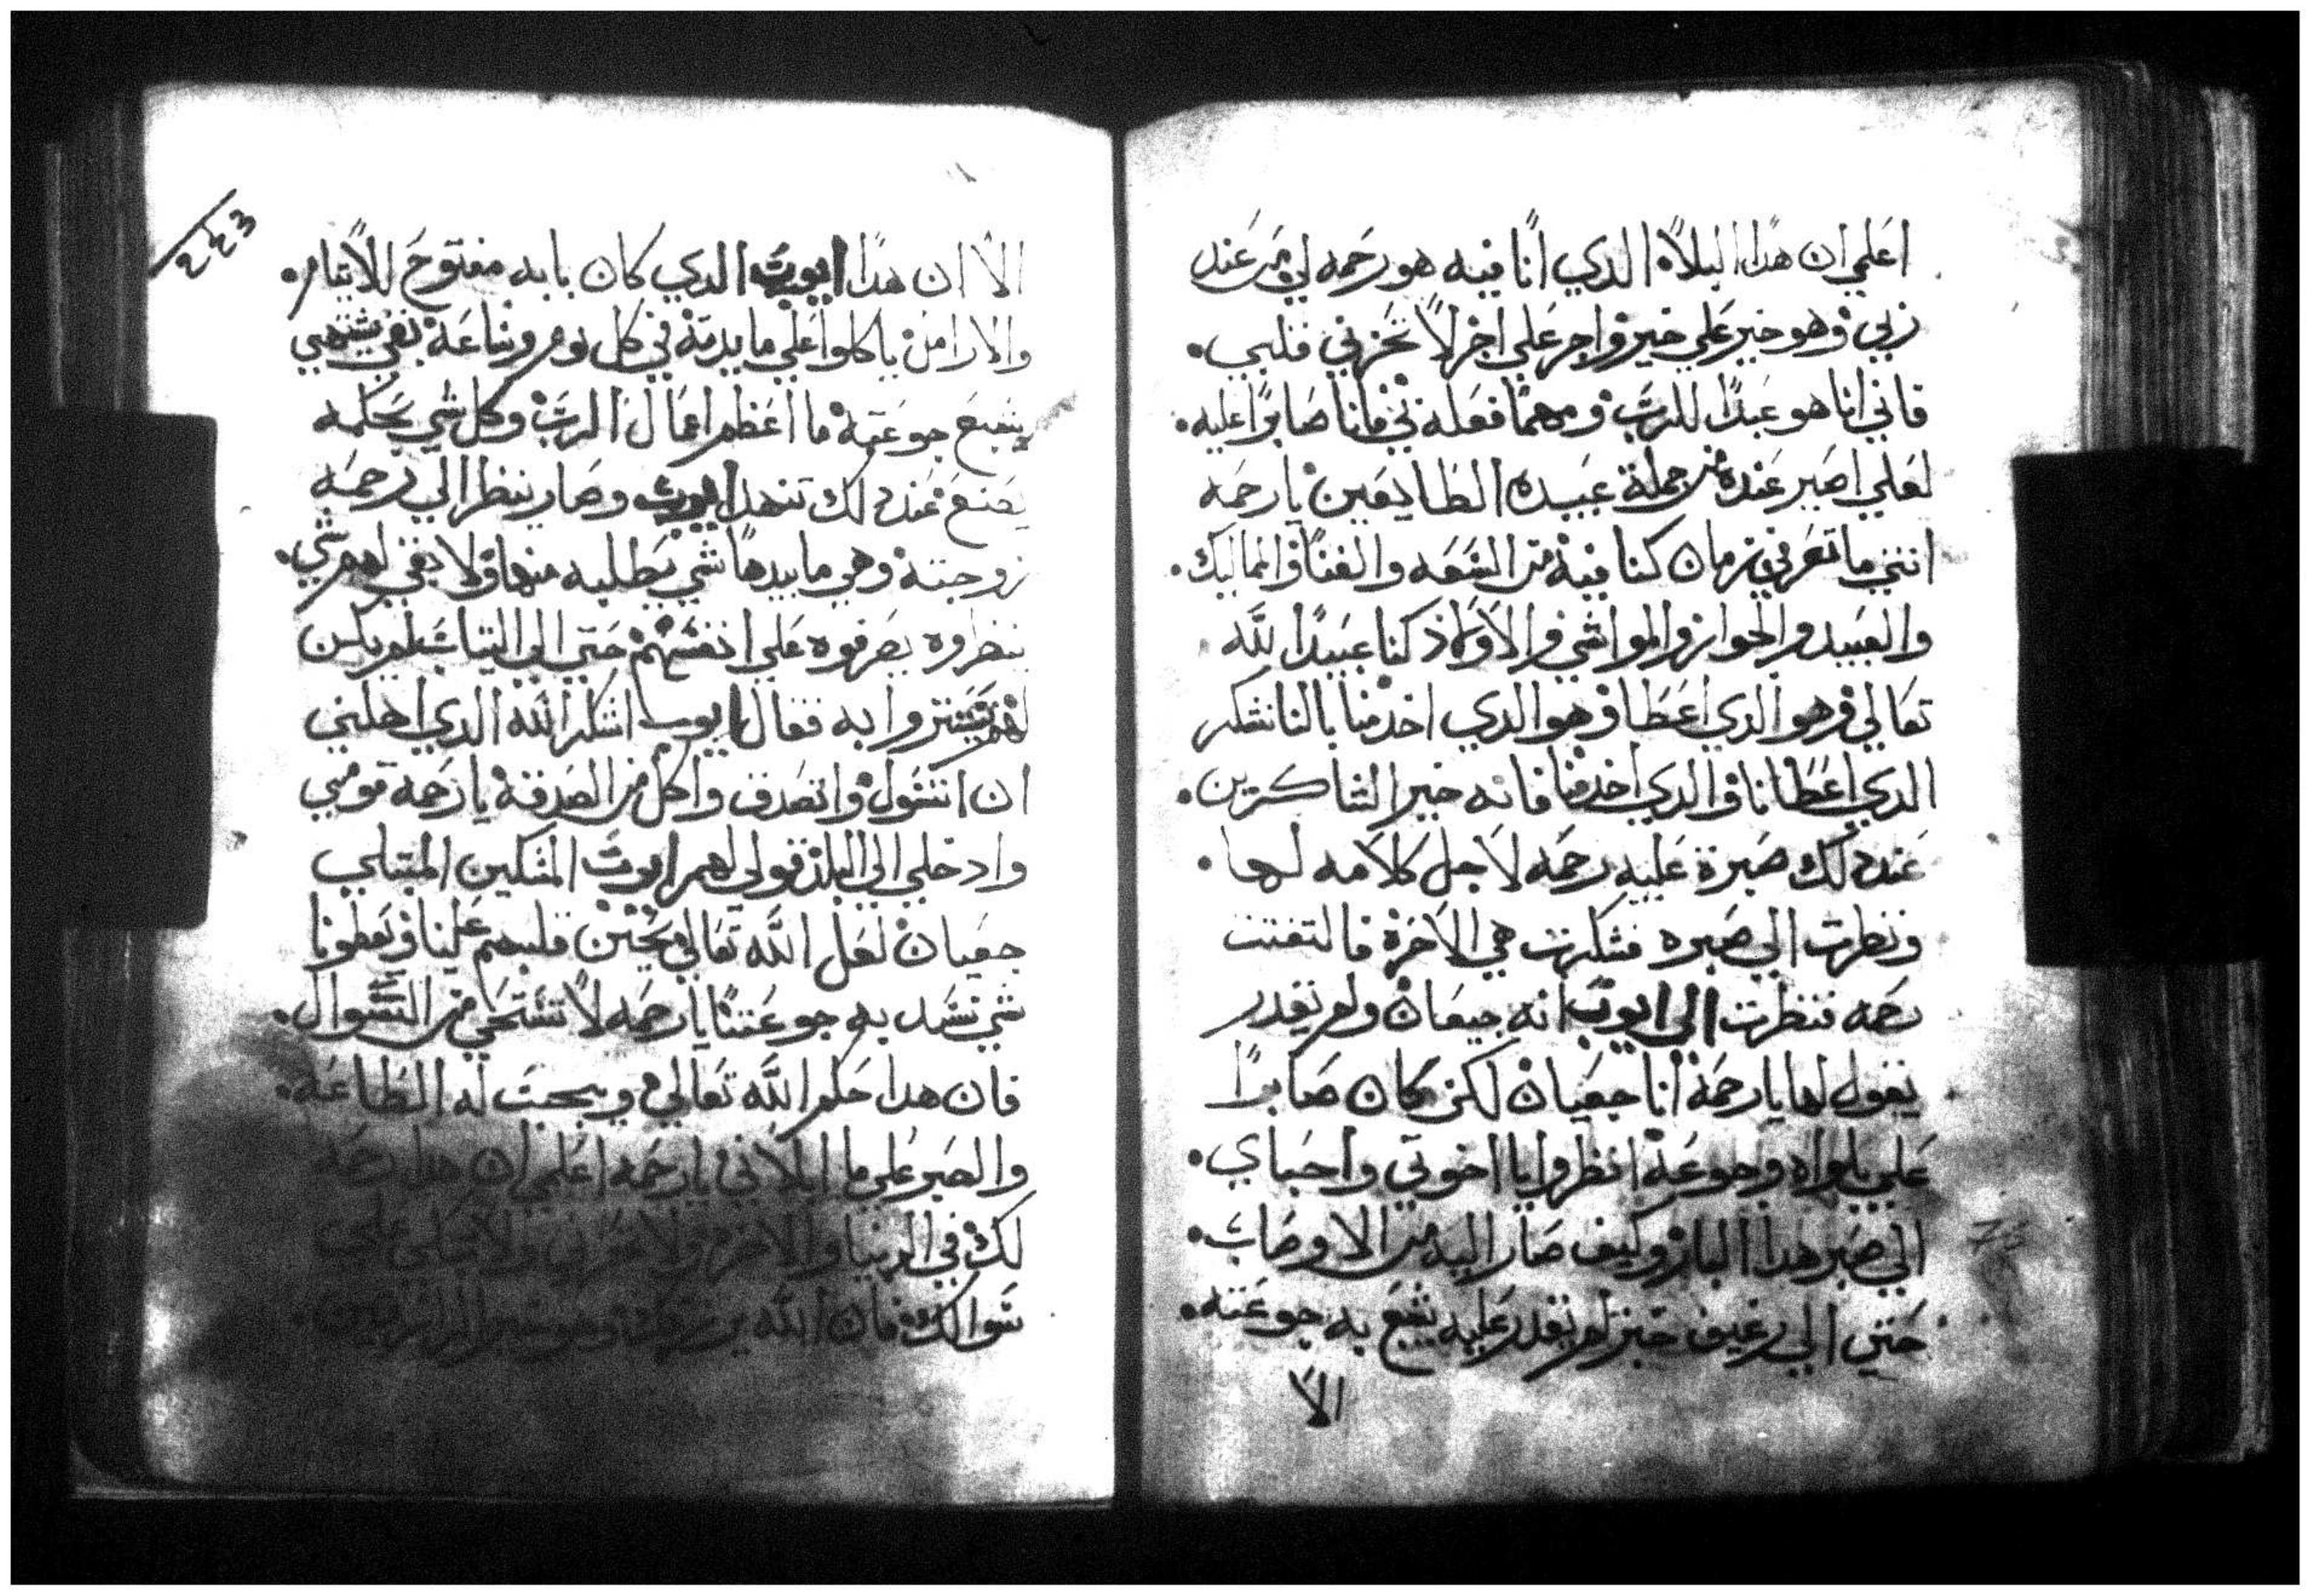 اعلمي ان هدا البلاء الدي انا فيه هو رحمه لي من عند
ربي وهو خير علي خير واجر علي اجر لا تحزني قلبي.
فاني انا هو عبدًا للرب ومهما فعله ني فانا صابرًا عليه.
لعلي اصير عنده من جملة عبيده الطايعين يا رحمه
انتي ما تعرفي زمان كنا فيه من السعه والغنا والمماليك.
والعبيد والجوار والمواشي والاولاد كنا عبيدًا لله
تعالي وهو الدي اعطا وهو الدي اخد منا بالنا نشكر
الدي اعطانا والدي اخد منا فانه خير الشاكرين.
عند دلك صبرة عليه رحمه لاجل كلامه لها.
ونظرت الي صبره فشكرت هي الاخرة فالتفتت
رحمه فنظرت الي ايوب انه جيعان ولم يقدر
يقول لها يا رحمه انا جعيان لكن كان صابرًا
علي بلواه وجوعه انظروا يا اخوتي واحباي.
الي صبر هدا البار وكيف صار اليه من الاوصاب.
حتي الي رغيف خبز لم يقدر عليه يشبع به جوعته.
الا
٢٤٣
الا ان هدا ايوب الدي كان بابه مفتوح للايتام.
والارامل ياكلوا علي مايدته في كل يوم وساعه بقي يشتهي
يشبع جوعته ما اعظم اعمال الرب وكل شي بحكمه
يصنع عند دلك تنهد ايوب وصار ينظر الي رحمه
زوجته وهي ما بيدها شي يطلبه منها ولا بقي لهم شي.
ينظروه يصرفوه علي انفسهم حتي الي الثياب لم يكن
لهم يستتروا به فقال ايوب اشكر الله الدي اهلني
ان اتسول واتصدق واكل من الصدقه يا رحمه قومي
وادخلي الي البلد قولي لهم ايوب المسكين المبتلي
جعيان لعل الله تعالي يحنن قلبهم علينا ويعطونا
شي نسد به جوعتنا يا رحمه لا تستحي من السوال.
فان هدا حكم الله تعالي ويجب له الطاعه.
والصبر علي ما ابلاني يا رحمه اعلمي ان هدا رحمه
لك في الدنيا والاخره ولا علي
سوالك فان الله يرزقك وهو خير الرازقين.